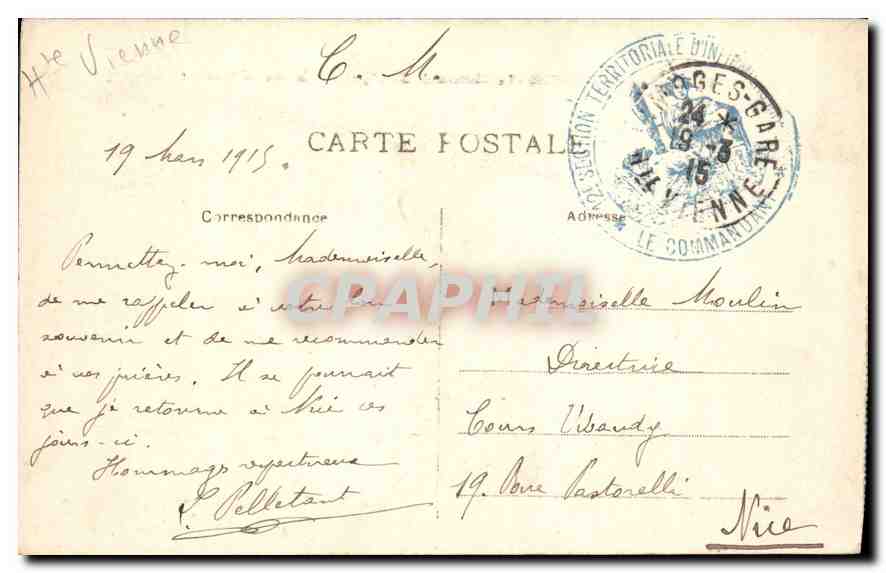 Hte Vienne
C. M.
19 Mars 1915.
CARTE POSTALE
12e SECTION TERRITORIALE D'INFIRMIERS
LE COMMANDANT
LIMOGES-GARE
24 *
19 -3
15
Hte VIENNE
Correspondance
Adresse
CPAPHIL
Permettez-moi, Mademoiselle,
de me rappeler à votre bon
souvenir et de me recommander
à vos prières. Il se pourrait
que je retourne à Nice ces
jours-ci.
Hommages respectueux
Pelletant
Mademoiselle Moulin
Directrice
Cours
19. Rue Pastorelli
Nice